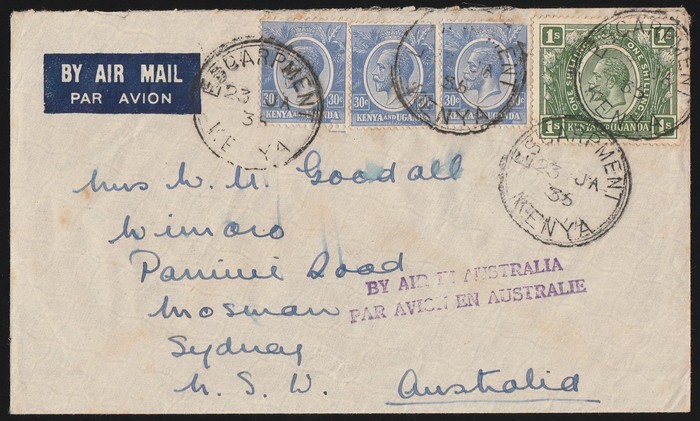 BY AIR MAIL
PAR AVION
30c 30c
KENYA AND UGANDA
30c 30c
KENYA AND UGANDA
30c 30c
KENYA AND UGANDA
1s 1s
ONE SHILLING ONE SHILLING
KENYA AND UGANDA
1s 1s
ESCARPMENT
23 JA
KENYA
ESCARPMENT
KENYA
ESCARPMENT
KENYA
ESCARPMENT
23 JA
35
KENYA
Mrs W. M. Goodall
Winnoro
Road
Mosman
Sydney
N. S. W. Australia
BY AIR IN AUSTRALIA
PAR AVION EN AUSTRALIE